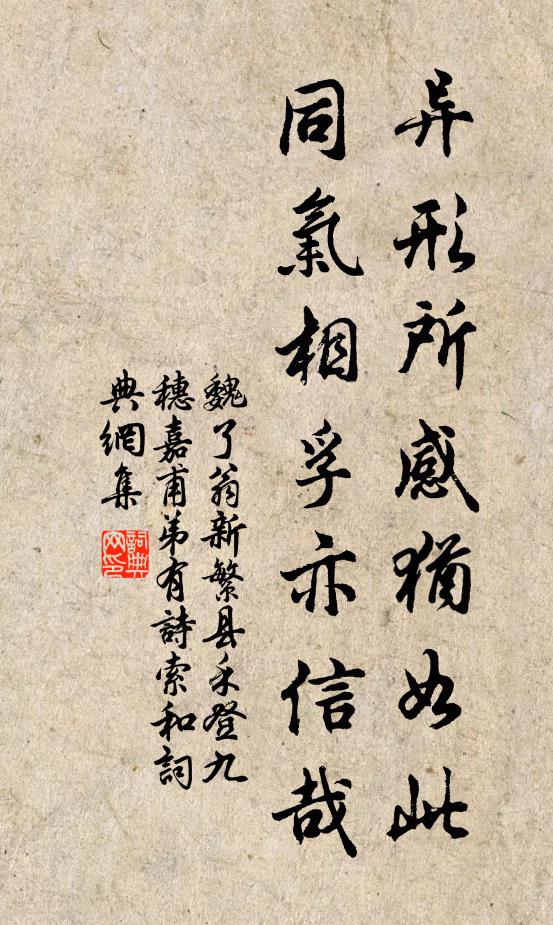 异形所感犹如此
同氣相孚亦信哉
魏了翁新繁县禾登九
穗嘉甫弟有詩索和詞
典網集
詞典网印